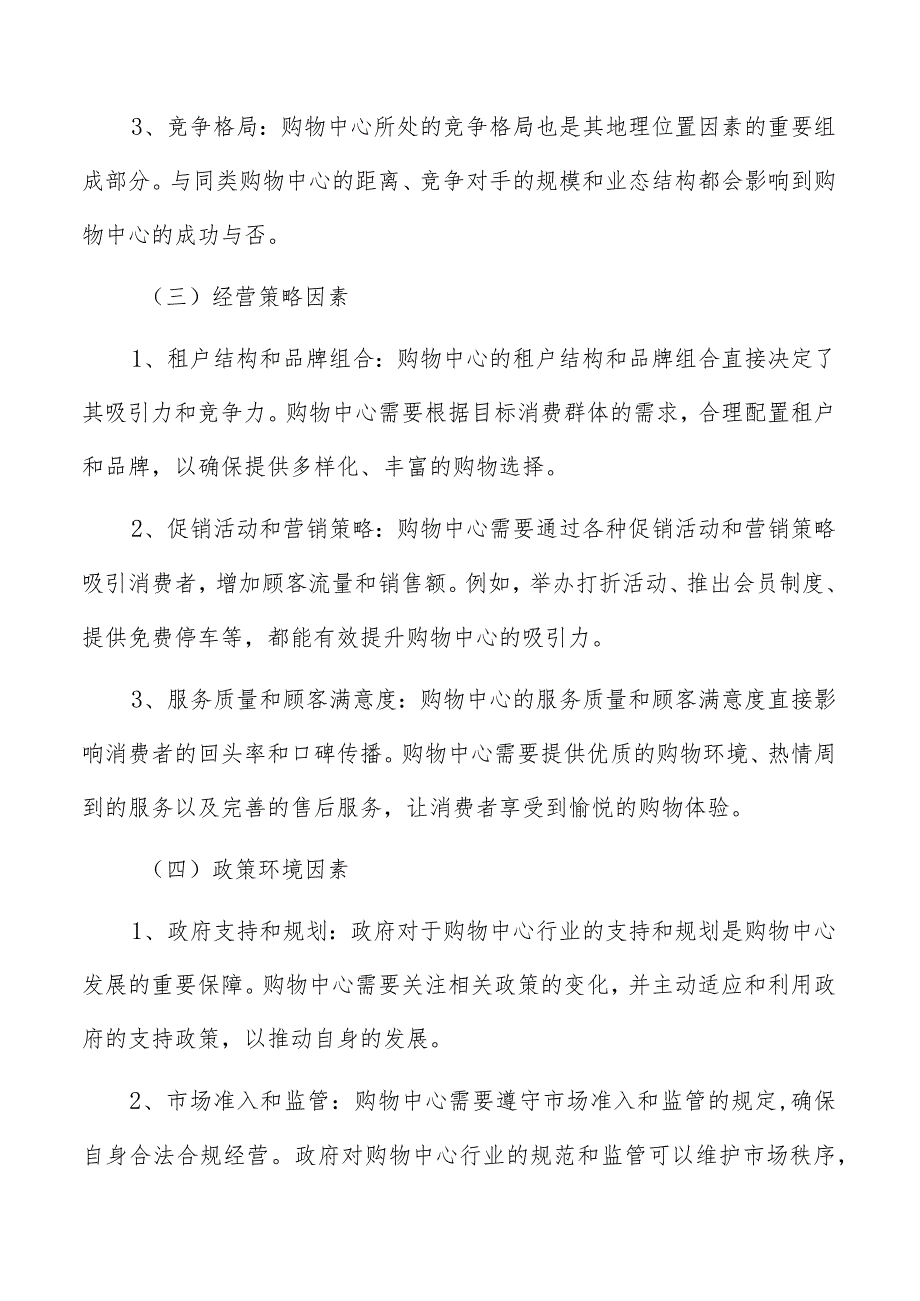 3、竞争格局：购物中心所处的竞争格局也是其地理位置因素的重要组
成部分。与同类购物中心的距离、竞争对手的规模和业态结构都会影响到购
物中心的成功与否。
（三）经营策略因素
1、租户结构和品牌组合：购物中心的租户结构和品牌组合直接决定了
其吸引力和竞争力。购物中心需要根据目标消费群体的需求，合理配置租户
和品牌，以确保提供多样化、丰富的购物选择。
2、促销活动和营销策略：购物中心需要通过各种促销活动和营销策略
吸引消费者，增加顾客流量和销售额。例如，举办打折活动、推出会员制度、
提供免费停车等，都能有效提升购物中心的吸引力。
3、服务质量和顾客满意度：购物中心的服务质量和顾客满意度直接影
响消费者的回头率和口碑传播。购物中心需要提供优质的购物环境、热情周
到的服务以及完善的售后服务，让消费者享受到愉悦的购物体验。
（四）政策环境因素
1、政府支持和规划：政府对于购物中心行业的支持和规划是购物中心
发展的重要保障。购物中心需要关注相关政策的变化，并主动适应和利用政
府的支持政策，以推动自身的发展。
2、市场准入和监管：购物中心需要遵守市场准入和监管的规定,确保
自身合法合规经营。政府对购物中心行业的规范和监管可以维护市场秩序，